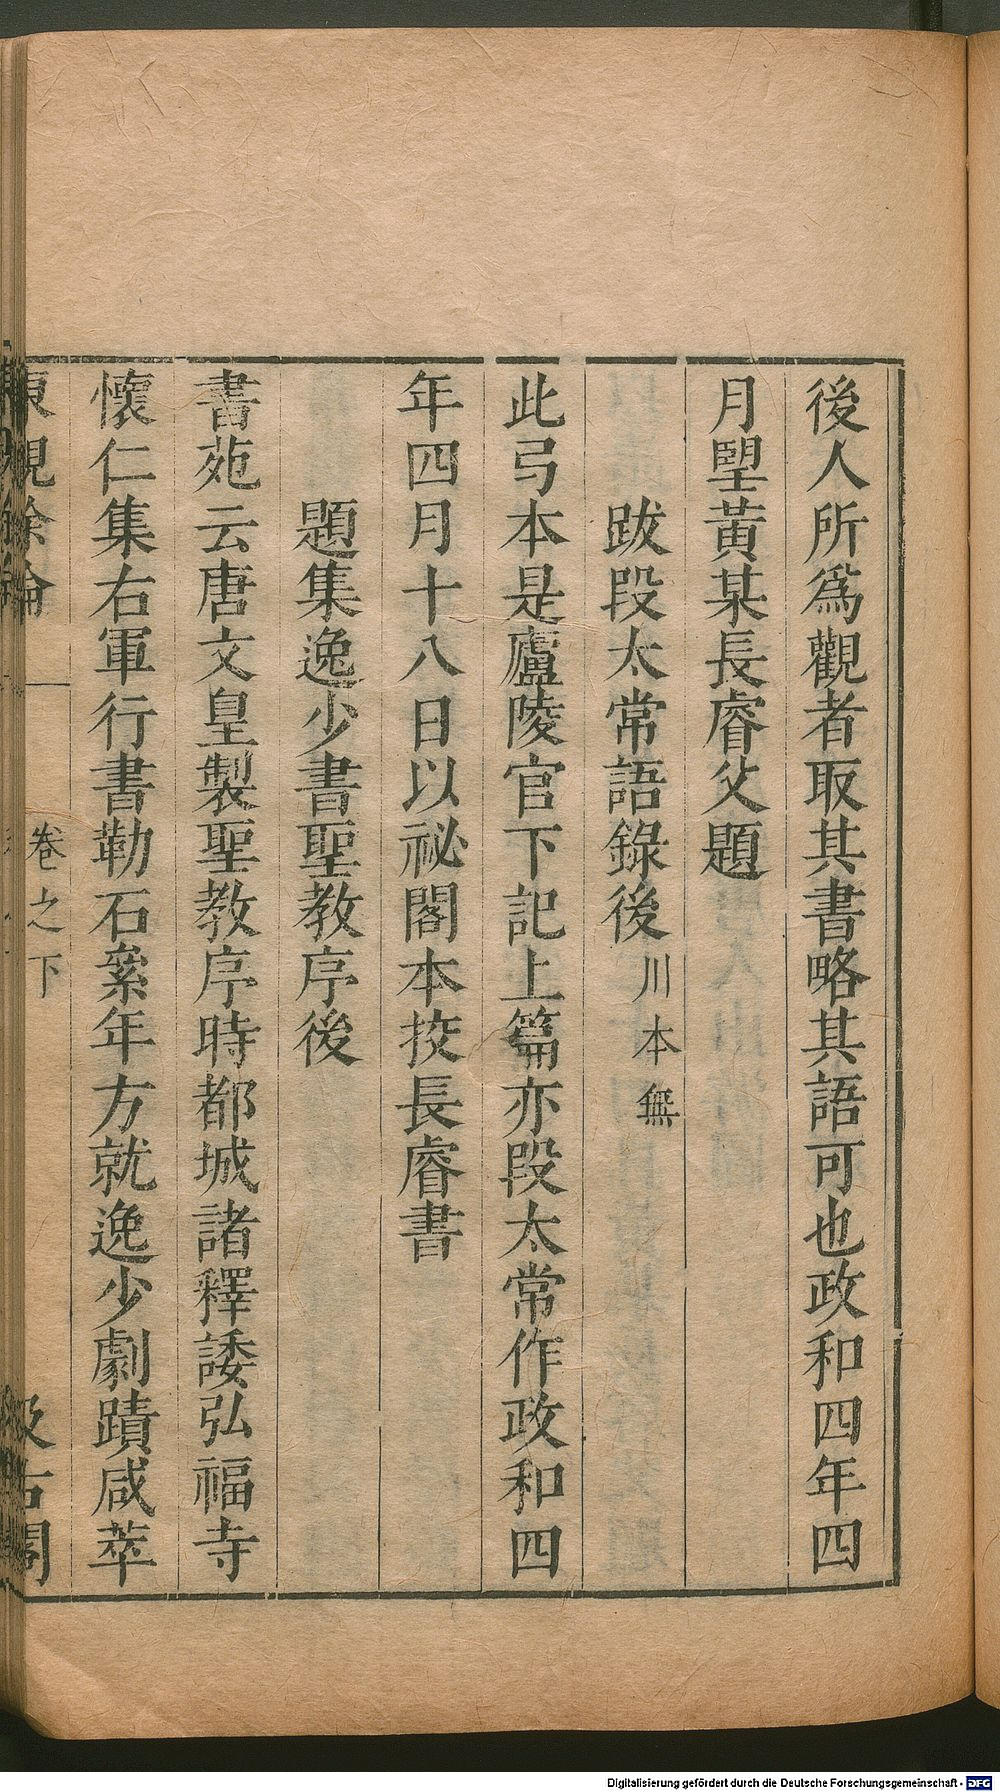 後人所爲觀者取其書略其語可也政和四年四
月朢黃某長睿父題
跋段太常語錄後 川本無
此弓本是廬陵官下記上篇亦段太常作政和四
年四月十八日以祕閣本挍長睿書
題集逸少書聖教序後
書苑云唐文皇製聖教序時都城諸釋諉弘福寺
懷仁集右軍行書勒石絫年方就逸少劇蹟咸萃
東觀餘論 卷之下 汲古閣
Digitalisierung gefördert durch die Deutsche Forschungsgemeinschaft - DFG